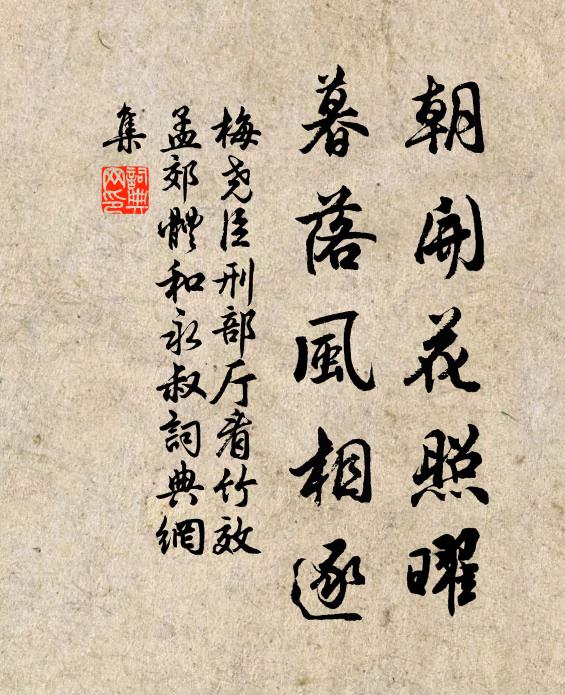 朝開花照曜
暮落風相逐
梅尧臣刑部厅看竹效
孟郊體和永叔詞典網
集
詞典网印